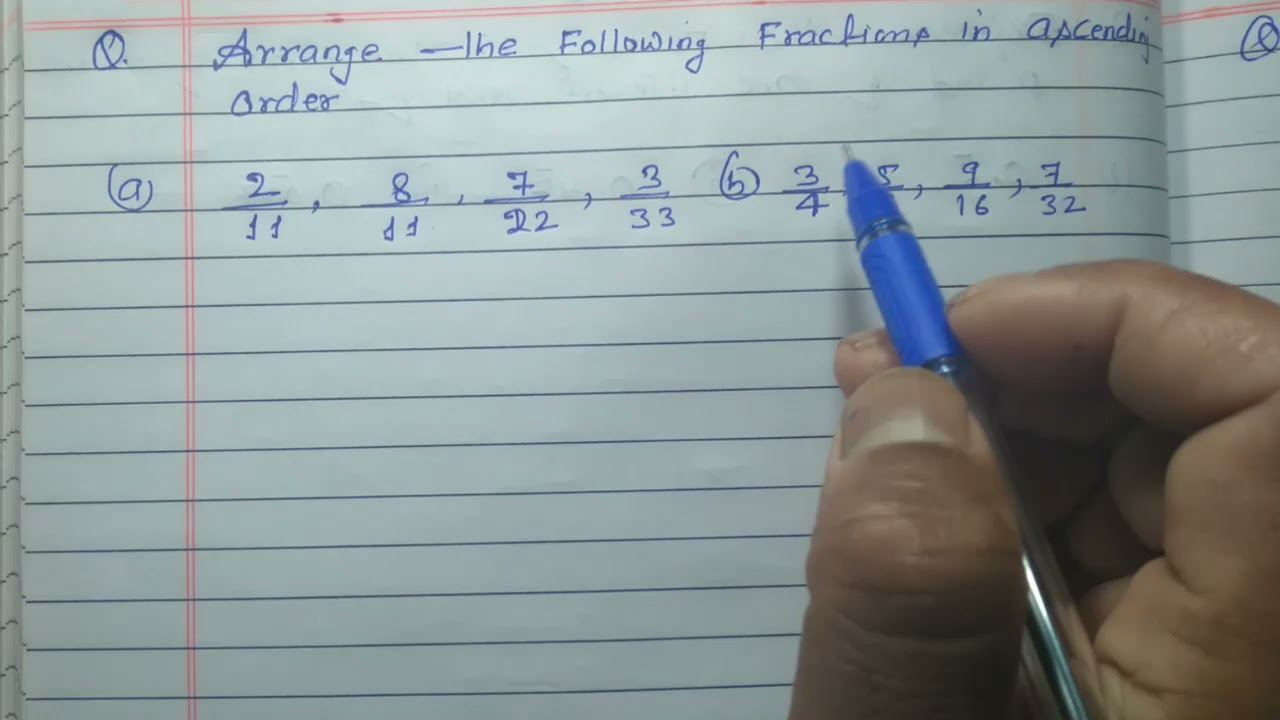 Q. Arrange the Following Fractions in ascending
order
(a) 2/11, 8/11, 7/22, 3/33 (b) 3/4, 5, 9/16, 7/32